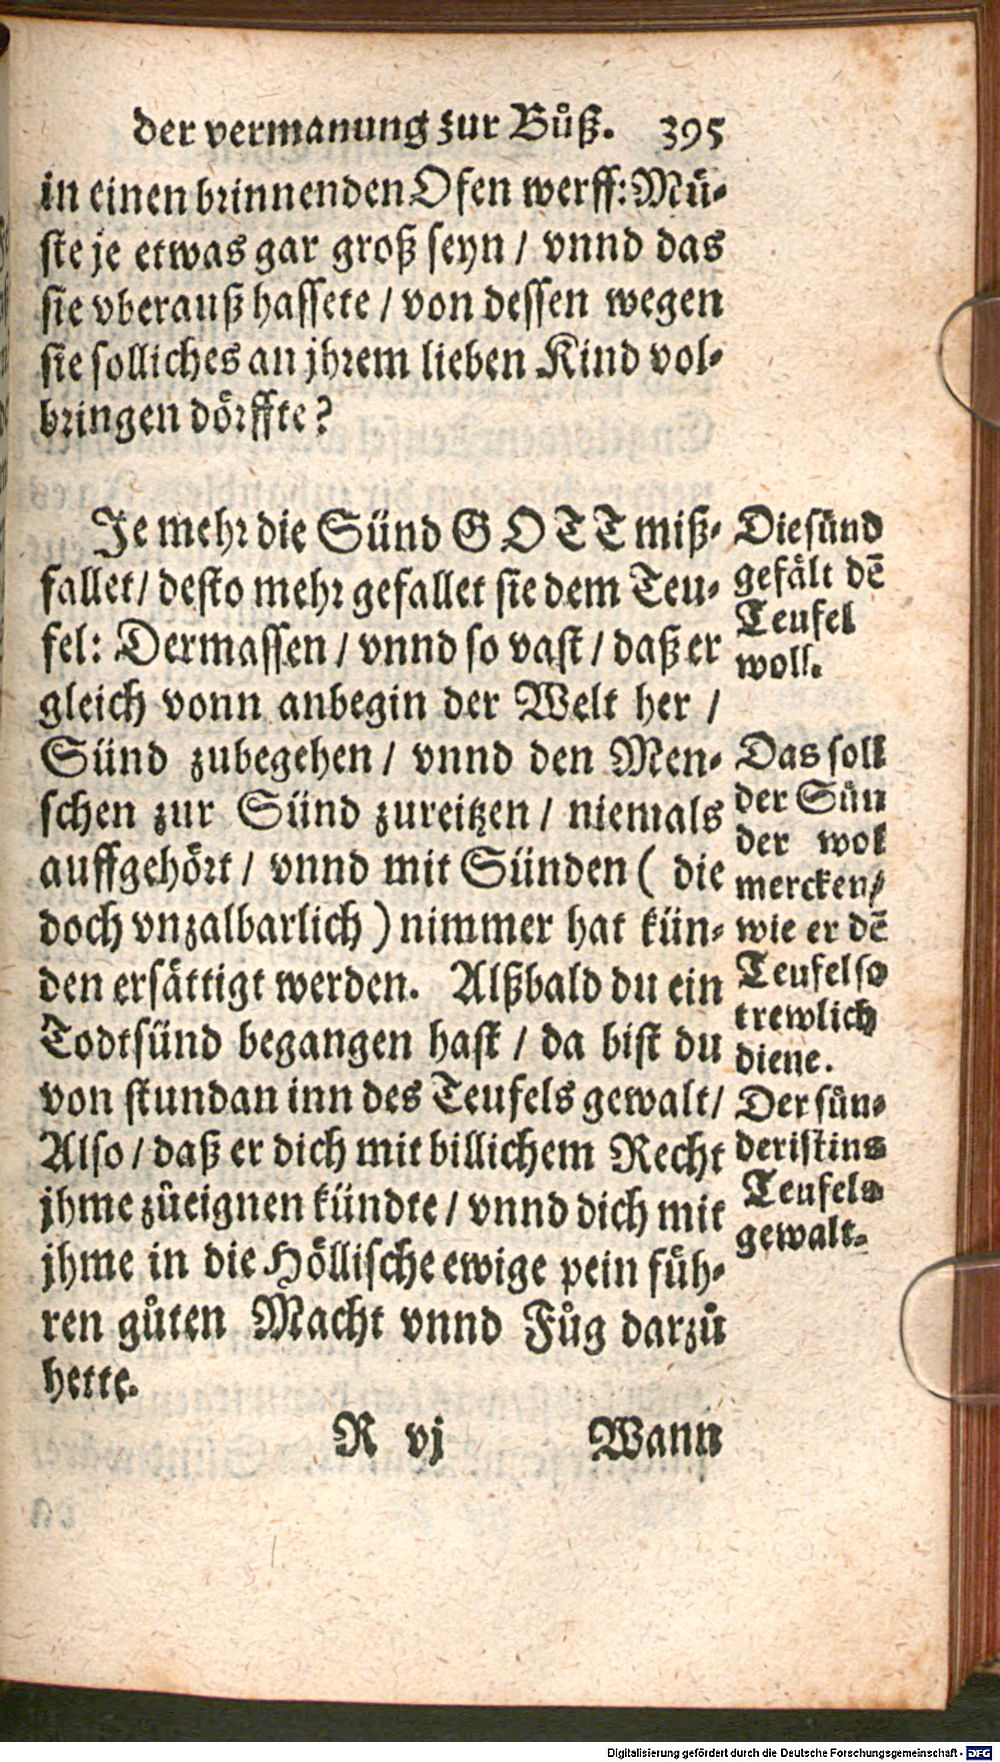 der vermanung zur Bůß. 395
in einen brinnenden Ofen werff: Mü-
ste je etwas gar groß seyn / vnnd das
sie vberauß hassete / von dessen wegen
sie solliches an jhrem lieben Kind vol-
bringen dörffte?
Je mehr die Sünd GOTT miß-
fallet / desto mehr gefallet sie dem Teu-
fel: Dermassen / vnnd so vast / daß er
gleich vonn anbegin der Welt her /
Sünd zubegehen / vnnd den Men-
schen zur Sünd zureitzen / niemals
auffgehört / vnnd mit Sünden ( die
doch vnzalbarlich ) nimmer hat kün-
den ersättigt werden. Alßbald du ein
Todtsünd begangen hast / da bist du
von stundan inn des Teufels gewalt /
Also / daß er dich mit billichem Recht
jhme zůeignen kündte / vnnd dich mit
jhme in die Höllische ewige pein füh-
ren gůten Macht vnnd Fůg darzů
hette.
Die sünd
gefält dē
Teufel
woll.
Das soll
der Sün
der wol
mercken /
wie er dē
Teufel so
trewlich
diene.
Der sün-
der ist ins
Teufels
gewalt.
R vj Wann
Digitalisierung gefördert durch die Deutsche Forschungsgemeinschaft - DFG